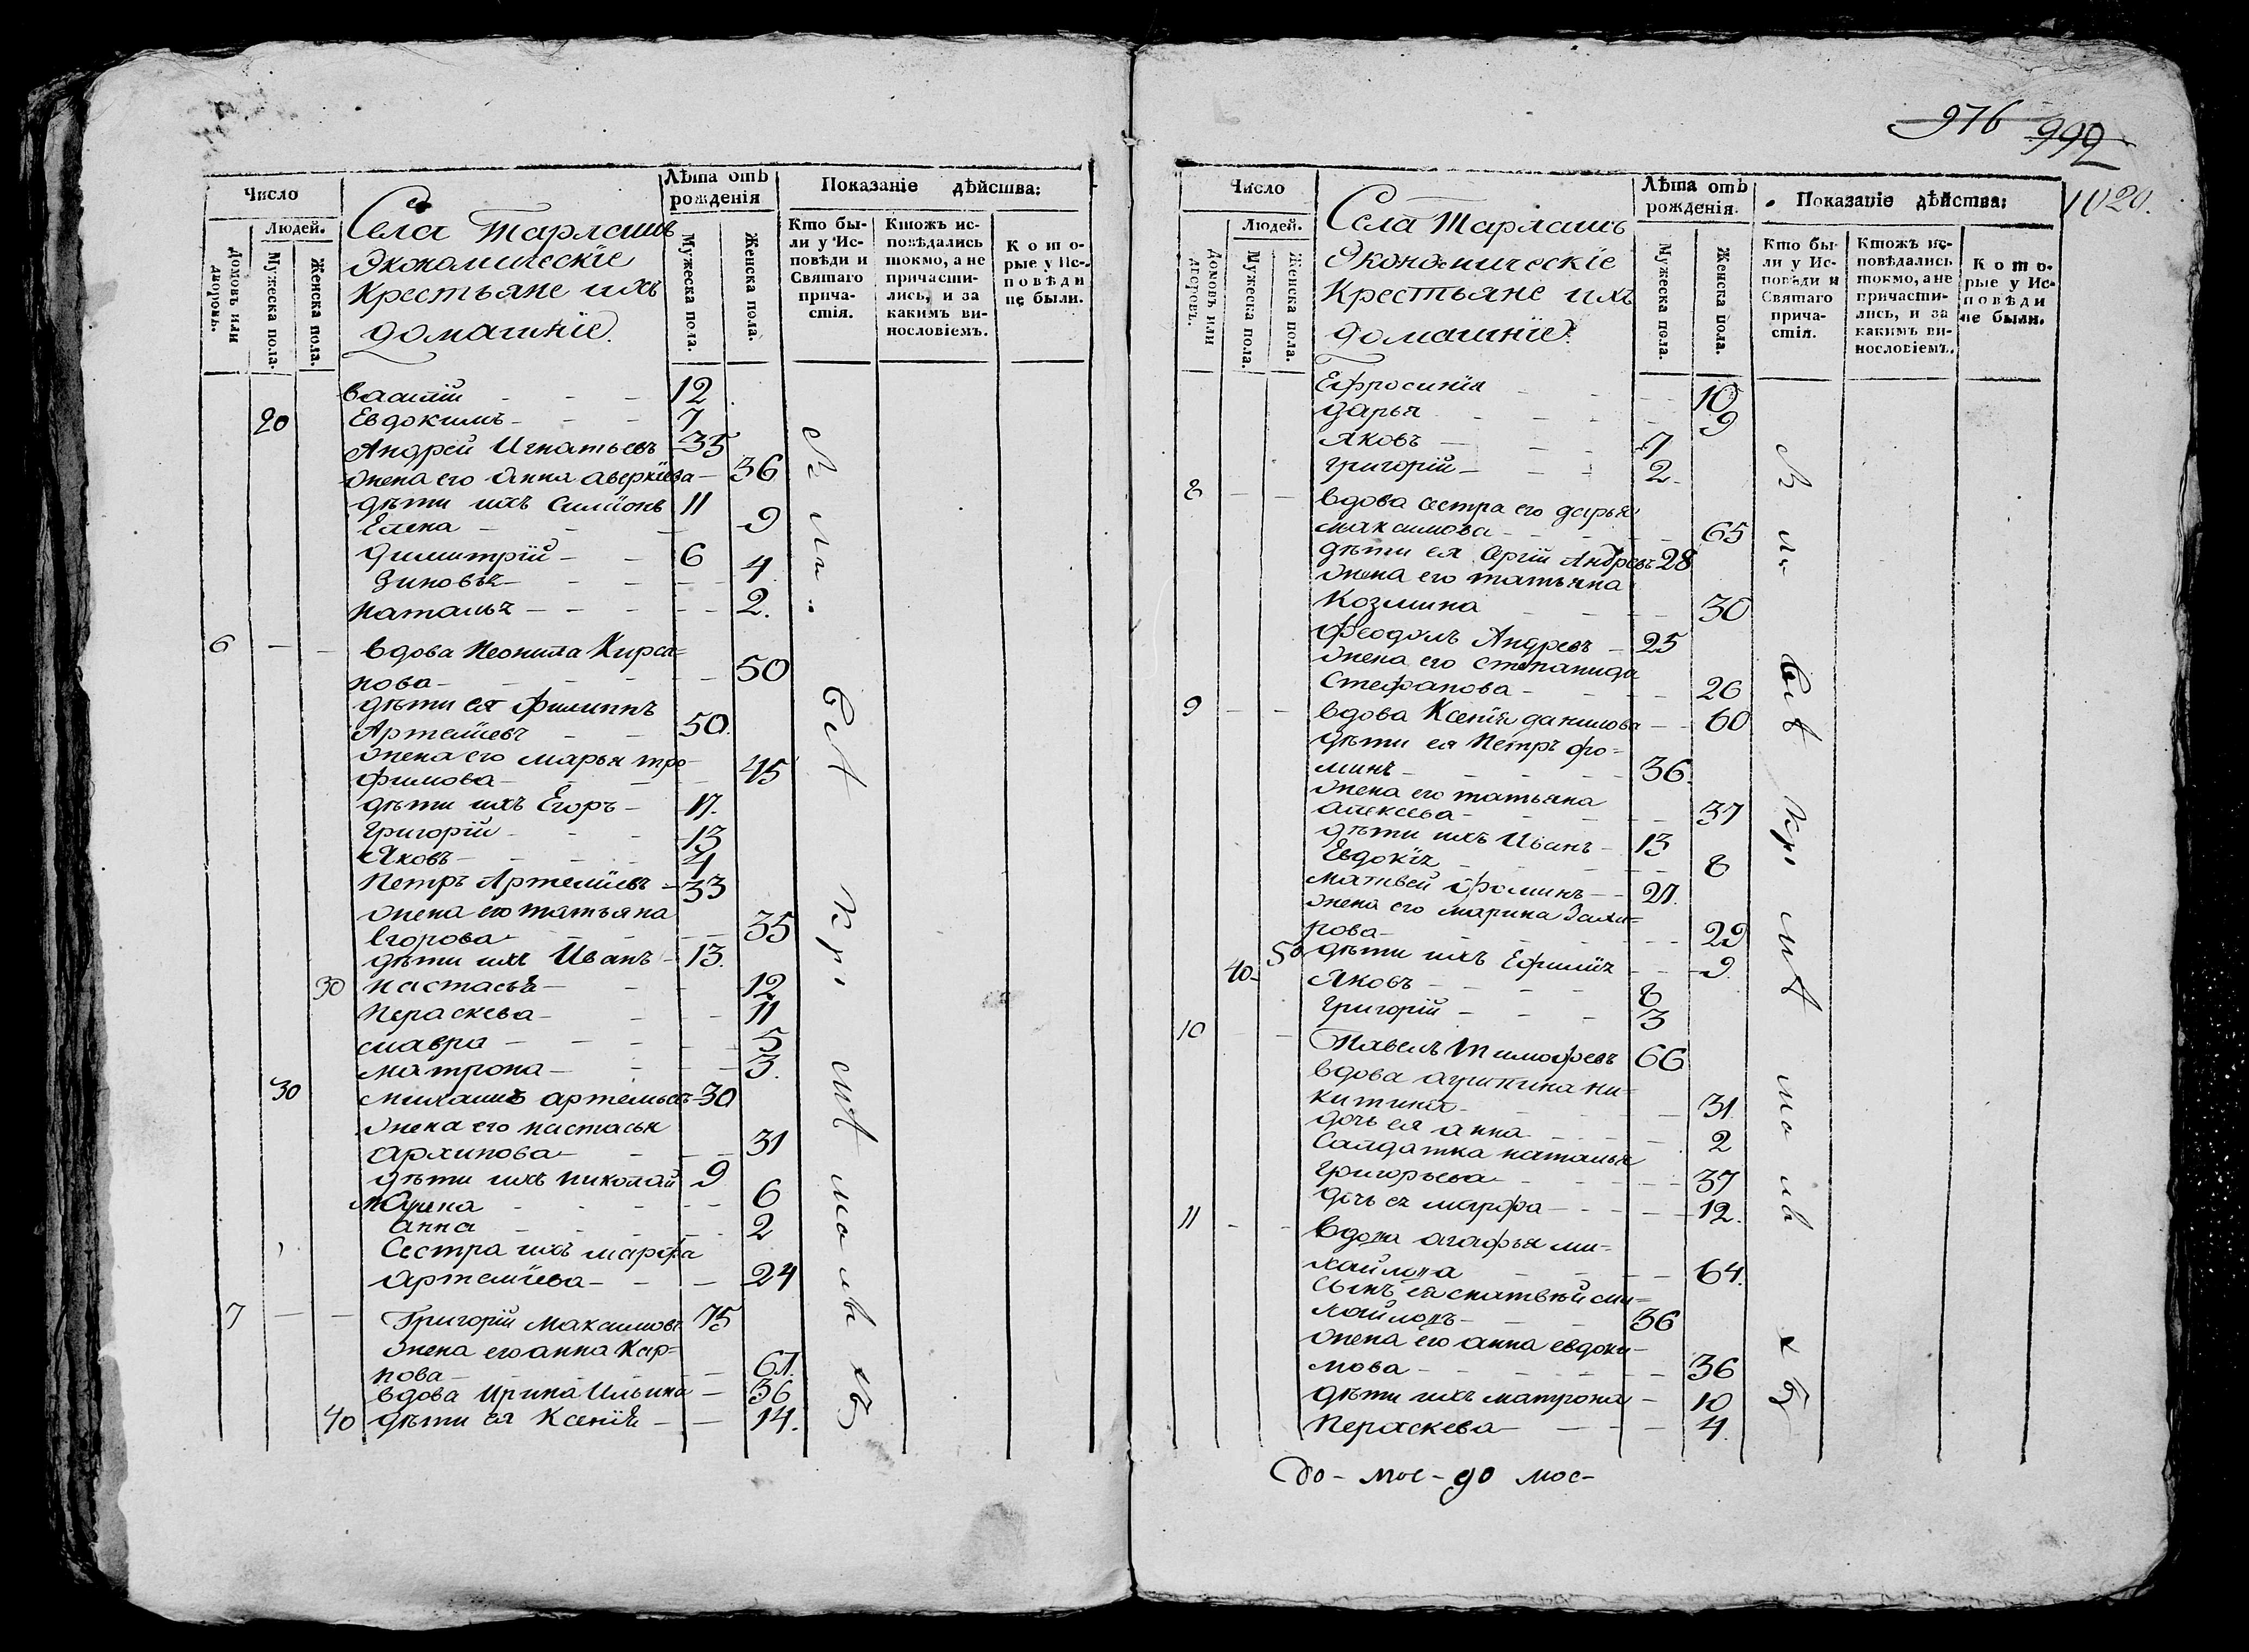 Число
Людей.
домовъ или дворовъ.
Мужеска пола.
Женска пола.
Села Тарлашъ
Экономическіе
Крестьяне ихъ
домашніе.
Лѣта отъ рожденія
Мужеска пола.
Женска пола.
Показаніе дѣйства:
Кто бы-
ли у Ис-
повѣди и
Святаго
прича-
стія.
Ктожъ ис-
повѣдались
токмо, а не
причасти-
лись, и за
какимъ ви-
нословіемъ.
К о т о-
рые у Ис-
п о в ѣ д и
не были.
василій - - - 12
20 Евдокимъ - - - 7
Андрей Игнатьевъ 35
жена его Анна аверкіева - 36
дѣти ихъ Симіонъ 11
Елена - - - 9
димитрій - - 6
Зиновья - - - 4
наталья - - - 2.
6 - - вдова Неонила Кирса=
нова - - - 50
дѣти ея филиппъ
Артеміевъ - - 50.
жена его марья тро-
фимова - - - 45
дѣти ихъ Егоръ - 17.
Григорій - - - 13
Яковъ - - - 4
Петръ Артеміевъ - 33
жена его татьяна
Егорова - - - 35
дѣти ихъ Иванъ - 13.
30 настасья - - - 12
Пераскева - - - 11
мавра - - - 5
матрона - - - 3.
30 михаилъ артемьевъ - 30
жена его настасья
архипова - - - 31
дѣти ихъ николай 9
Арина - - - 6
анна - - - 2
Сестра ихъ марфа
артеміева - - - 24
7 - - Григорій Максимовъ 75
жена его анна Кар=
пова - - - 61.
вдова Ирина Ильина - 36
40 дѣти ея Ксенія - - 14.
976 999
1020.
Число
Людей.
домовъ или дворовъ.
Мужеска пола.
Женска пола.
Села Тарлашъ
Экономическіе
Крестьяне ихъ
домашніе.
Лѣта отъ рожденія.
Мужеска пола.
Женска пола.
Показаніе дѣйства:
Кто бы-
ли у Ис-
повѣди и
Святаго
прича-
стія.
Ктожъ ис-
повѣдались
токмо, а не
причасти-
лись, и за
какимъ ви-
нословіемъ.
К о т о-
рые у Ис-
п о в ѣ д и
не были.
Ефросинія - - - 10
дарья - - - 9
Яковъ - - - 7
григорій - - - 2.
8 - - вдова сестра его дарья
максимова - - - 65
дѣти ея Сергій Андревъ 28
жена его татьяна
Козмина - - - 30
Андревъ - 25
жена его степанида
Стефанова - - - 26
9 - - вдова Ксенія данилова - - 60
дѣти ея Петръ фо=
минъ - - - 36.
жена его татьяна
алексеева - - - 37
дѣти ихъ Иванъ - 13
Евдокія - - - 8
матвей фоминъ - -
жена его марина
- - - 29
50 дѣти ихъ Ефимія - - 9.
40 - Яковъ - - - 8
григорій - - - 3
10 - Павелъ Тимофеевъ 66
вдова агрипина ни=
китина - - - 31.
дочь ея анна - - - 2
Салдатка наталья
григорьева - - - 37
дочь ея марфа - - - 12.
11 - - вдова агафья ми=
хайлова - - - 64.
сынъ ея матвѣй ми=
хайловъ - - - 36
жена его анна евдоки-
мова - - - 36
дѣти ихъ матрона - 10
Пераскева - - - 4.
до - мос - до мос -